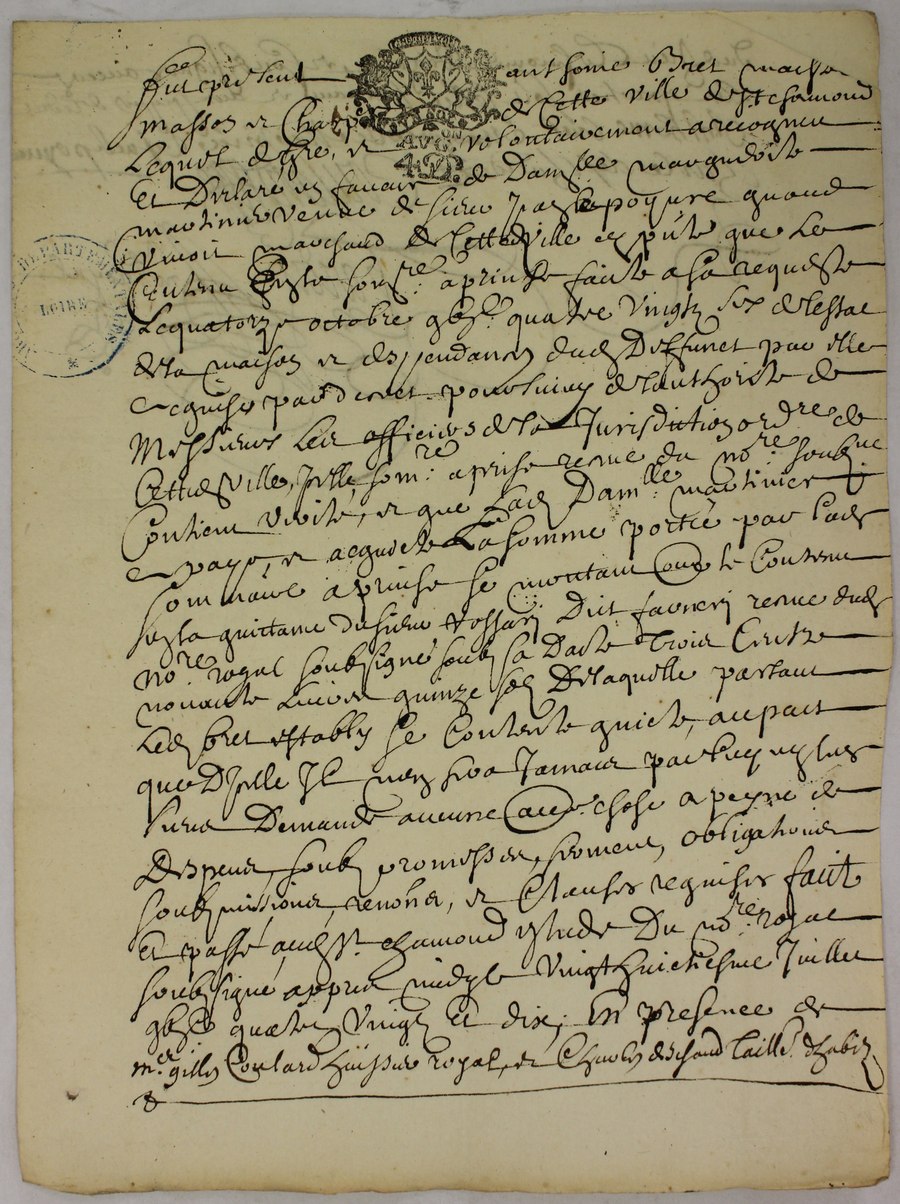 Fut present anthoine Bret maistre
masson et Charp de Cette ville de st chamond
Lequel de gre, et volontairement a recogneu
Et Declare en faveur de Damlle margueritte
martinier veufve de sieur
vivoit marchand de Cette ville que Le
Contenu sommre aprinse faite a sa requeste
Le quatorze octobre gbjc quatre vingtz six de lestat
de la maison et deppendances dud Deffunct par elle
acquise par decret poursuivy de lauthorite de
Messieurs Les officiers de la Jurisdiction ordre de
Cetted ville, somre aprise receue du nore soubsne
Contient verite, et que Lad Damlle martinier
a paye, et acquitte La somme portee par Lad
sommaire aprinse se montant le Contenu
la quittance du sieur receue dud
nore royal soubsigne soubz sa Datte Trois Centz
nonante Livres quinze solz De laquelle partant
Led bret estably se Contente quicte, au
que D'Icelle Il n'en sera Jamais par luy ny les
siens Demande aucune autre chose a peyne de
Despens, soubz promesses, serment, obligations
soubzmissions, renons, et Clauses requises faict
Et passe aud st chamond estude Du nore royal
soubsigne appres midy le Vingt huictiesme Juillet
gbjc quatre Vingtz Et dix, En presence de
mre gilles Coulard huissier royal, et Charles deschaud taillr d'habitz
AVG ON
4 D.
DEPARTEMENTALES
LOIRE